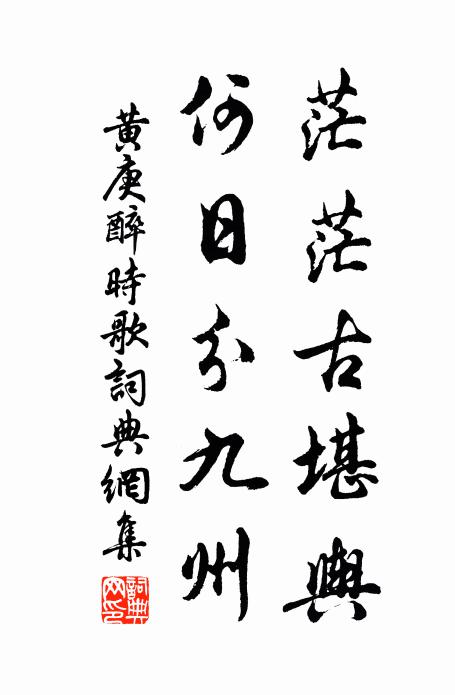 茫茫古堪輿
何日分九州
黃庚醉時歌詞典網集
詞典網印